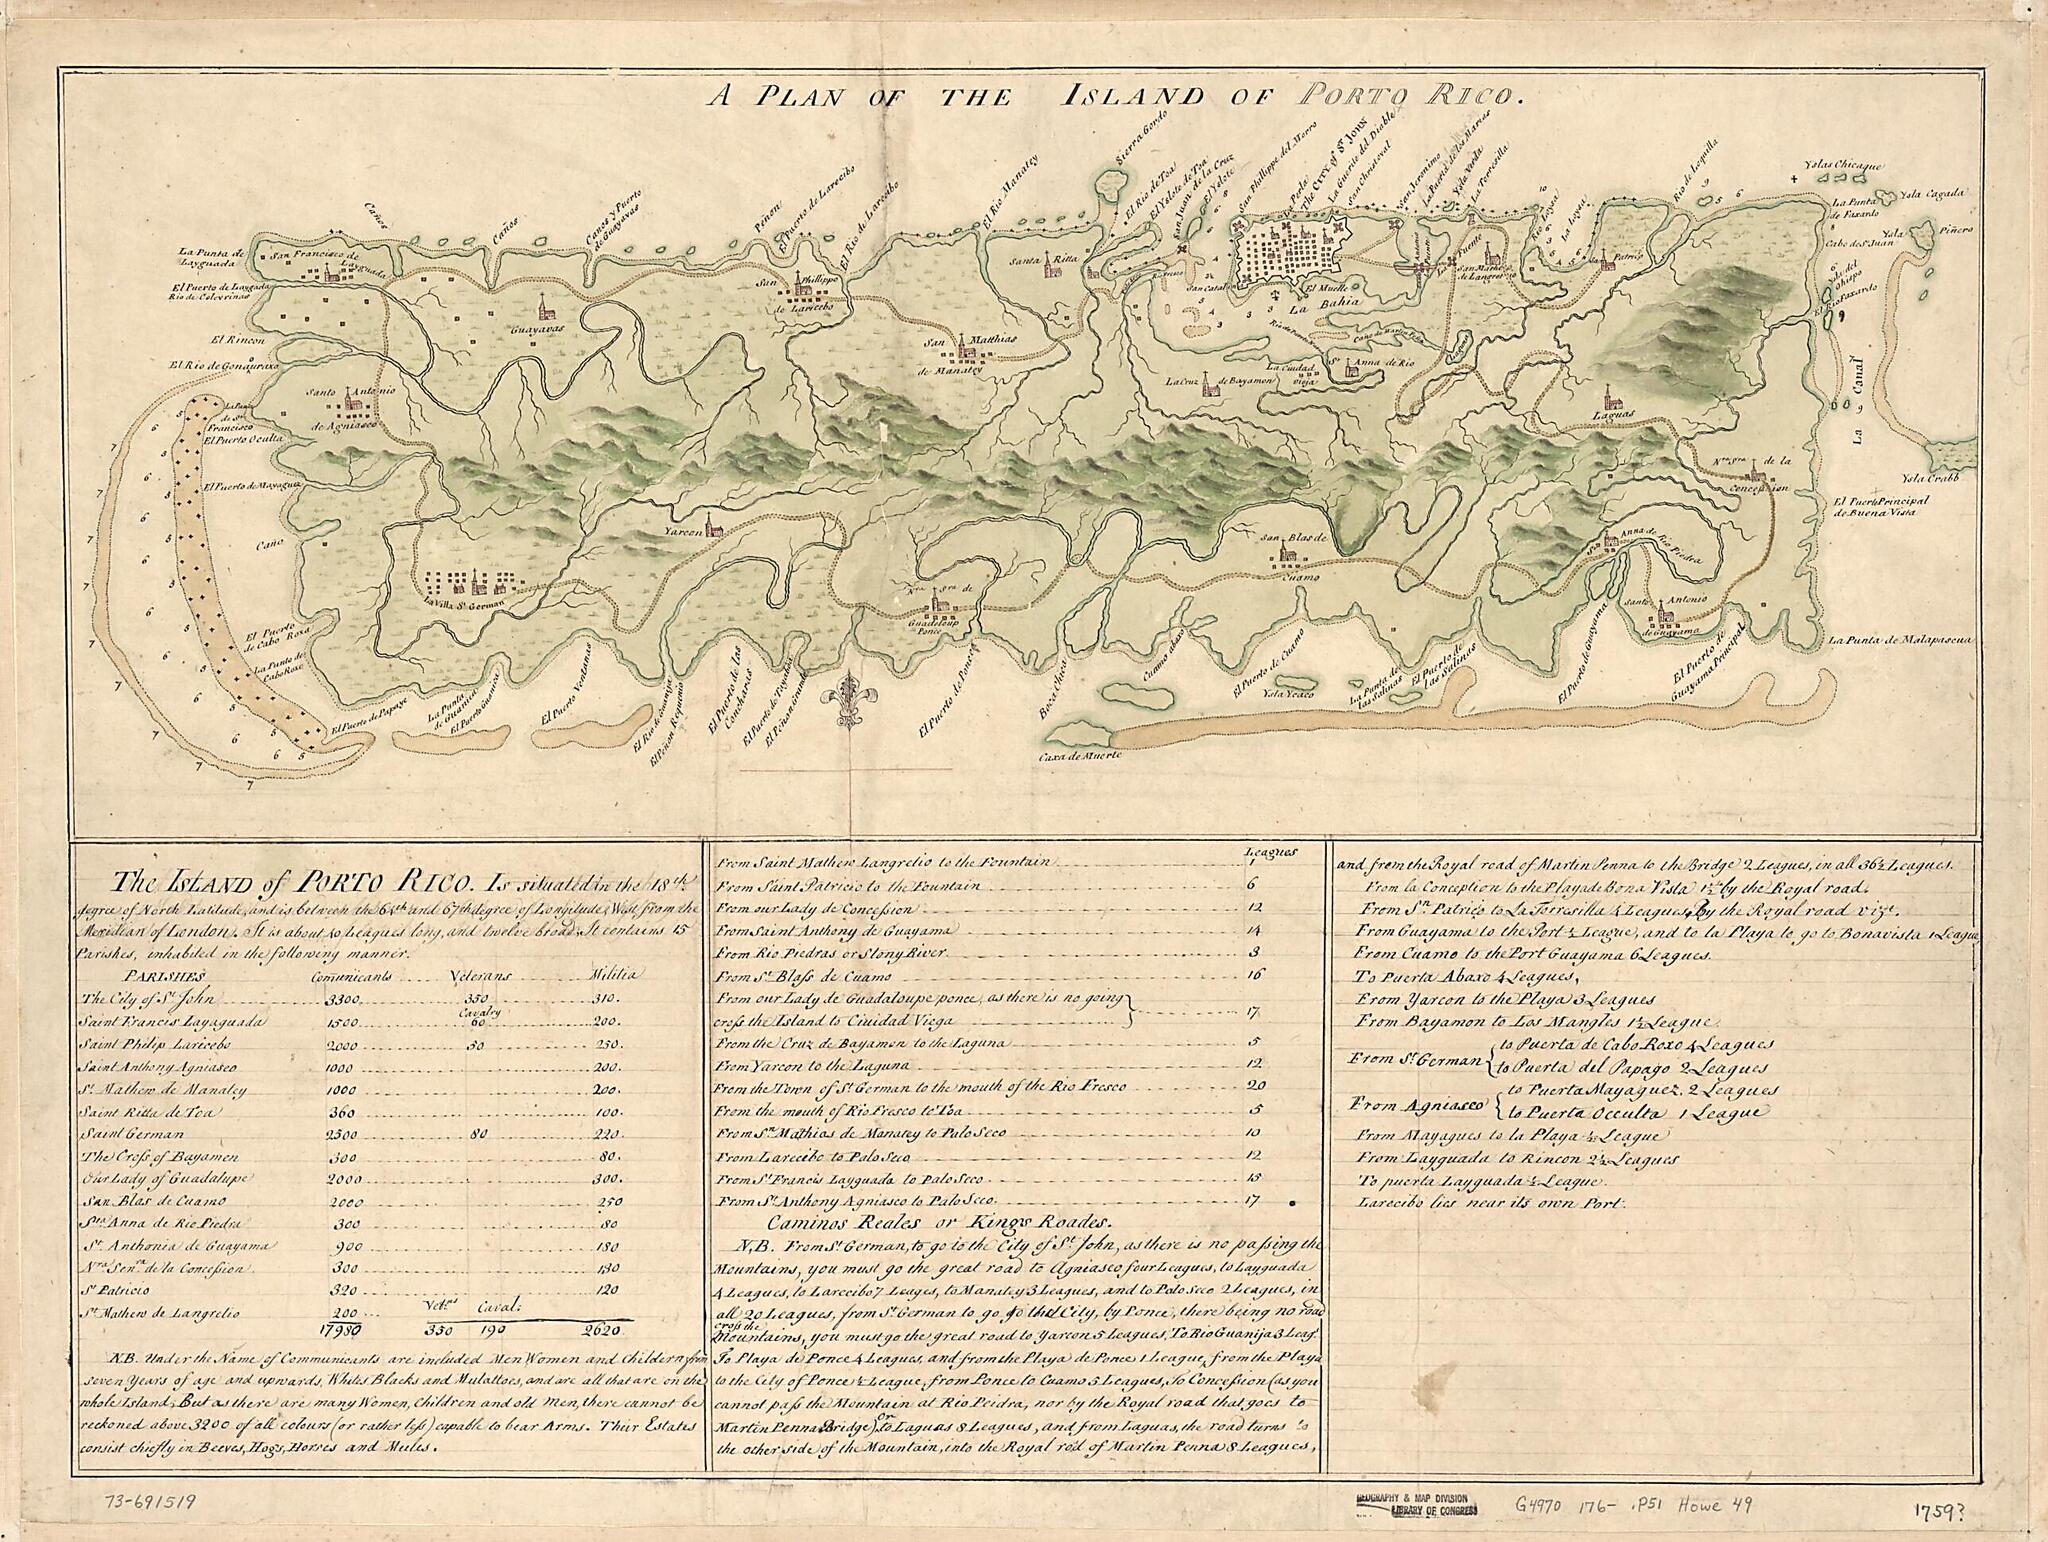 A PLAN OF THE ISLAND OF PORTO RICO.
Sierra Gordo
El Rio de Toa
El Yslote de Toa
San Juan de la Cruz
El Yslote
San Phillippe del Morro
La Perla
The CITY of St. JOHN
La Guerite del Diable
San Christoval
San Jeronimo
Ysla Verda
La Torresilla
Rio Loysa
La Loysa
Rio de Loquilla
Yslas Chicaque
Ysla Cagada
La Punta de Faxardo
Ysla Piñero
Cabo de St. Juan
Ysla del Obispo
El Rio Faxardo
La Canal
Ysla Crabb
El Puerto Principal
de Buena Vista
La Punta de Malapascua
Caños
Caños
Caños y Puerto
de Guayavas
Piñon
El Puerto de Larecibo
El Rio de Larecibo
El Rio Manatey
La Punta de
Layguada
San Francisco de
Layguada
El Puerto de Laygada
Rio de Colevrinas
El Rincon
El Rio de Gonauraxo
La Punta
de Sn.
Francisco
El Puerto Oculta
El Puerto de Mayaguez
Caño
El Puerto
de Cabo Roxa
La Punta de
Cabo Roxe
El Puerto de Papaye
La Punta
de Guanica
El Puerto Guanica
El Puerto Ventanas
El Rio de Guanija
El Peñon Requmio
El Puerto de las
Concharas
El Puerto de Toyaboa
El Peñon Grande
El Puerto de Ponce
Boca Chica
Cuamo abaxo
El Puerto de Cuamo
Ysla Ycaco
La Punta de
las Salinas
El Puerto de
las Salinas
El Puerto de Guayama
El Puerto de
Guayama Principal
Caxa de Muerte
Guayavas
San Phillippo
de Laricebo
San Matthias
de Manatey
Santa Ritta
San Catalina
El Muelle
La Bahia
La Fuente
San Matheo
de Langrerio
Sn. Patrico
La Ciudad
Vieja
Sa. Anna de Rio
La Cruz de Bayamon
Laguas
Nra. Sra. de la
Concepsion
Santo Antonio
de Agniasco
Yarcon
La Villa St. German
Nra. Sra. de
Guadeloup
Ponce
San Blas de
Cuamo
Sa. Anna de Rio Piedra
Santo Antonio
de Guayama
The ISLAND of PORTO RICO. Is situated in the 18th.
degree of North Latitude, and is between the 64th and 67th degree of Longitude, West from the
Meridian of London. It is about 40 Leagues long, and twelve broad. It contains 15
Parishes, inhabited in the following manner.
PARISHES Comunicants Veterans Militia
The City of St. John 3300 350 310.
Cavalry
Saint Francis Layaguada 1500 60 200.
Saint Philip Laricebo 2000 50 250.
Saint Anthony Agniasco 1000 200.
St. Mathew de Manatey 1000 200.
Saint Ritta de Toa 360 100.
Saint German 2500 80 220.
The Cross of Bayamen 300 80.
Our Lady of Guadalupe 2000 300.
San Blas de Cuamo 2000 250
Sta. Anna de Rio Piedra 300 80
St. Anthonia de Guayama 900 180
Nra. Senra. de la Concession 300 130
St Patricio 320 120
St. Mathew de Langrelio 200 Vetns. Caval:
17980 350 190 2620.
N.B. Under the Name of Communicants are included Men Women and Childern from
seven Years of age and upwards, Whites Blacks and Mulattoes, and are all that are on the
whole Island; But as there are many Women, Children and old Men, there cannot be
reckoned above 3200 of all colours (or rather less) capable to bear Arms. Their Estates
consist chiefly in Beeves, Hogs, Horses and Mules.
Leagues
From Saint Mathew Langrelio to the Fountain 1
From Saint Patricio to the Fountain 6
From our Lady de Concession 12
From Saint Anthony de Guayama 14
From Rio Piedras or Stony River 3
From St. Blass de Cuamo 16
From our Lady de Guadaloupe ponce, as there is no going
cross the Island to Ciuidad Viega 17
From the Cruz de Bayamon to the Laguna 5
From Yarcon to the Laguna 12
From the Town of St. German to the mouth of the Rio Fresco 20
From the mouth of Rio Fresco to Toa 5
From Sn. Mathias de Manatey to Palo Seco 10
From Larecibo to Palo Seco 12
From St. Francis Layguada to Palo Seco 15
From St. Anthony Agniasco to Palo Seco. 17
Caminos Reales or Kings Roades.
N.B. From St. German, to go to the City of St. John, as there is no passing the
Mountains, you must go the great road to Agniasco four Leagues, to Layguada
4 Leagues, to Larecibo 7 Leages, to Manatey 3 Leagues, and to Palo Seco 2 Leagues, in
all 20 Leagues, from St. German to go to the City, by Ponce, there being no road
cross the
Mountains, you must go the great road to Yarcon 5 Leagues, To Rio Guanija 3 Leags.
To Playa de Ponce 4 Leagues, and from the Playa de Ponce 1 League, from the Playa
to the City of Ponce ½ League, from Ponce to Cuamo 5 Leagues, To Concession (as you
cannot pass the Mountain at Rio Peidra, nor by the Royal road that goes to
Martin Penna Bridge) or to Laguas 8 Leagues, and from Laguas, the road turns to
the other side of the Mountain, into the Royal rod of Martin Penna 8 Leagues,
and from the Royal road of Martin Penna to the Bridge 2 Leagues, in all 36½ Leagues.
From la Conception to the Playa de Bona Vista 1½ by the Royal road.
From Sn. Patrico to La Torresilla 4 Leagues, By the Royal road vizt.
From Guayama to the Port ½ League, and to la Playa to go to Bonavista 1 League
From Cuamo to the Port Guayama 6 Leagues.
To Puerta Abaxo 4 Leagues,
From Yarcon to the Playa 3 Leagues
From Bayamon to Los Mangles 1½ League.
From St. German to Puerta de Cabo Roxo 4 Leagues
to Puerta del Papago 2 Leagues
From Agniasco to Puerta Mayaguez, 2 Leagues
to Puerta Occulta 1 League
From Mayagues to la Playa ½ League
From Layguada to Rincon 2½ Leagues
To puerta Layguada ½ League.
Larecibo lies near its own Port.
73-691519
GEOGRAPHY & MAP DIVISION
LIBRARY OF CONGRESS
G4970 176- .P51 Howe 49
1759?